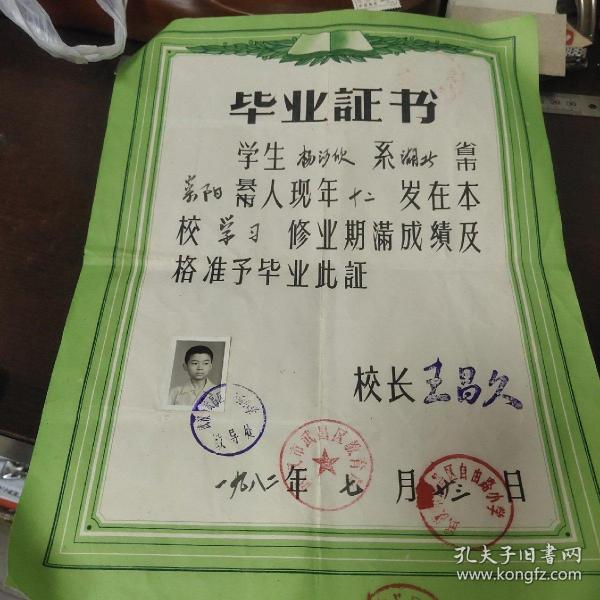 毕业証书
学生 杨 欣 系 湖北 省市
枣阳 县市 人现年 十二 岁在本
校 学习 修业期滿成績及
格准予毕业此証
校长 王昌久
教导处
武汉市武昌区教育
一九八二年 七 月 廿三 日
武昌区自由路小学
孔夫子旧书网
www.kongfz.com